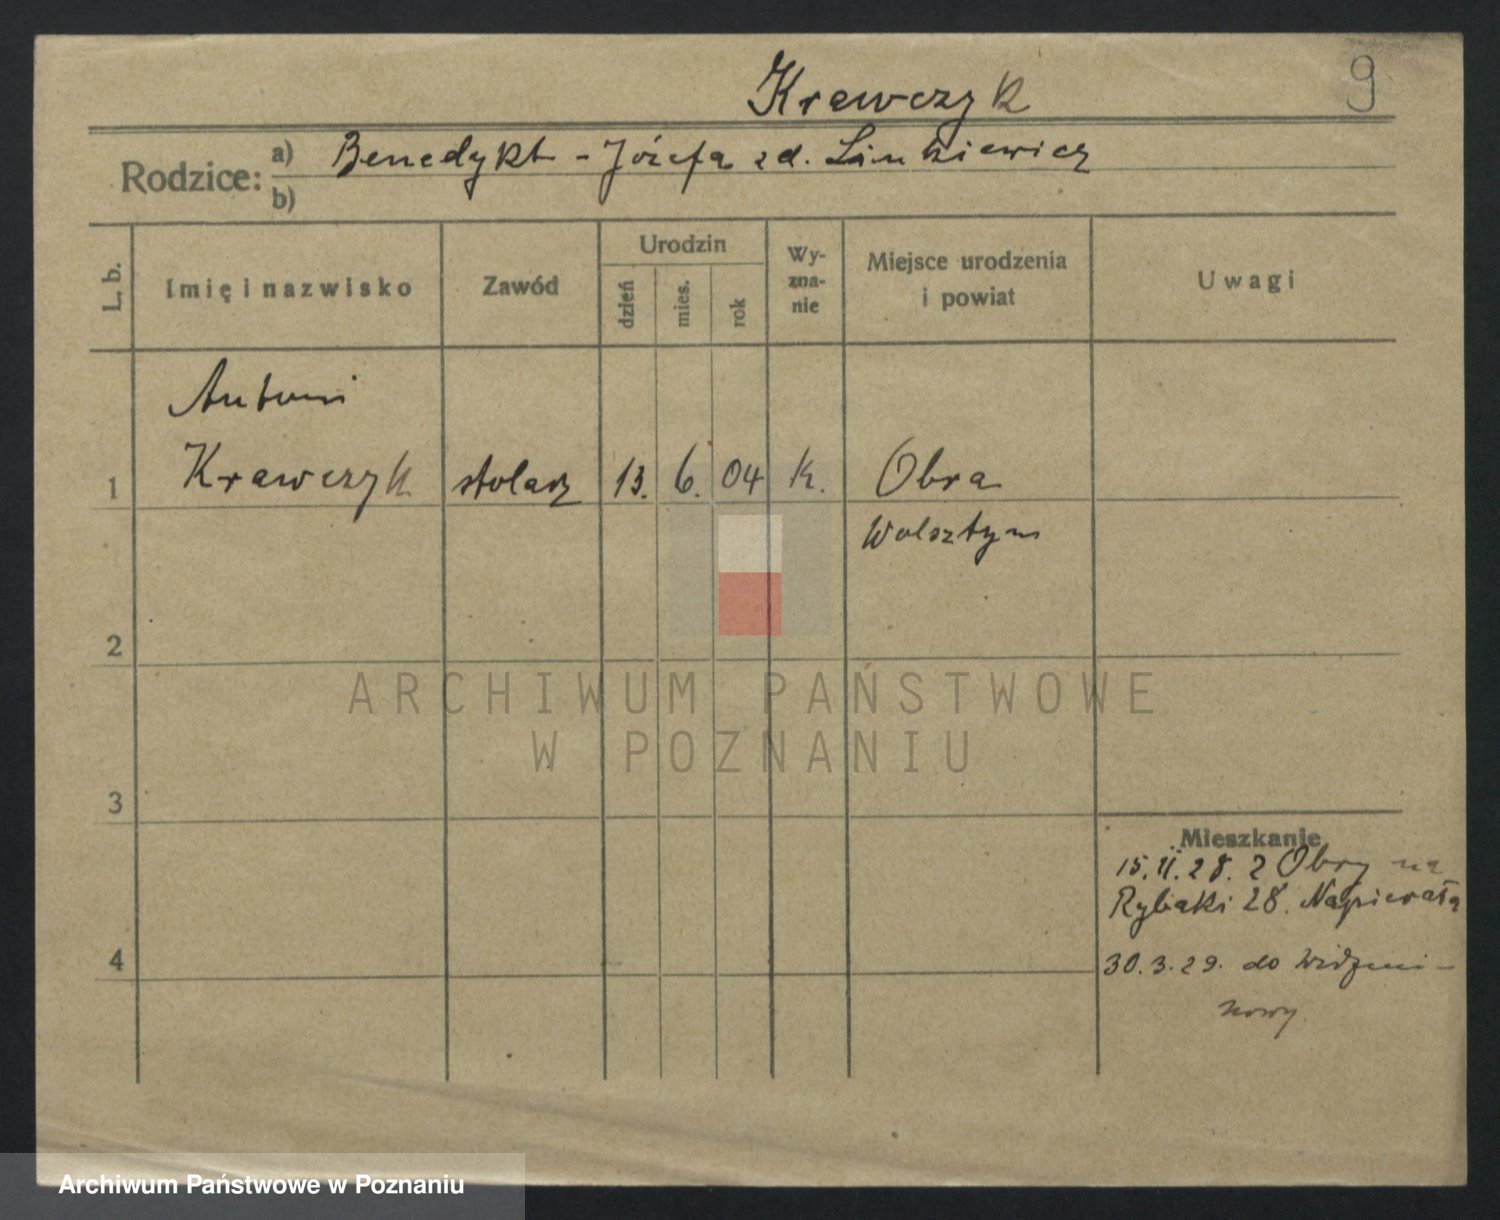 Krawczyk 9
Rodzice: a) Benedykt - Józefa z d. Linkiewicz
b)
L. b. Imię i nazwisko Zawód Urodzin dzień mies. rok Wy-zna-nie Miejsce urodzenia i powiat Uwagi
Antoni
1 Krawczyk stolarz 13. 6. 04 k. Obra
Wolsztyn
2
ARCHIWUM PAŃSTWOWE
W POZNANIU
3
Mieszkanie
15.II.28. z Obry na
Rybaki 28. Napierała
4 30.3.29. do
nowy
Archiwum Państwowe w Poznaniu